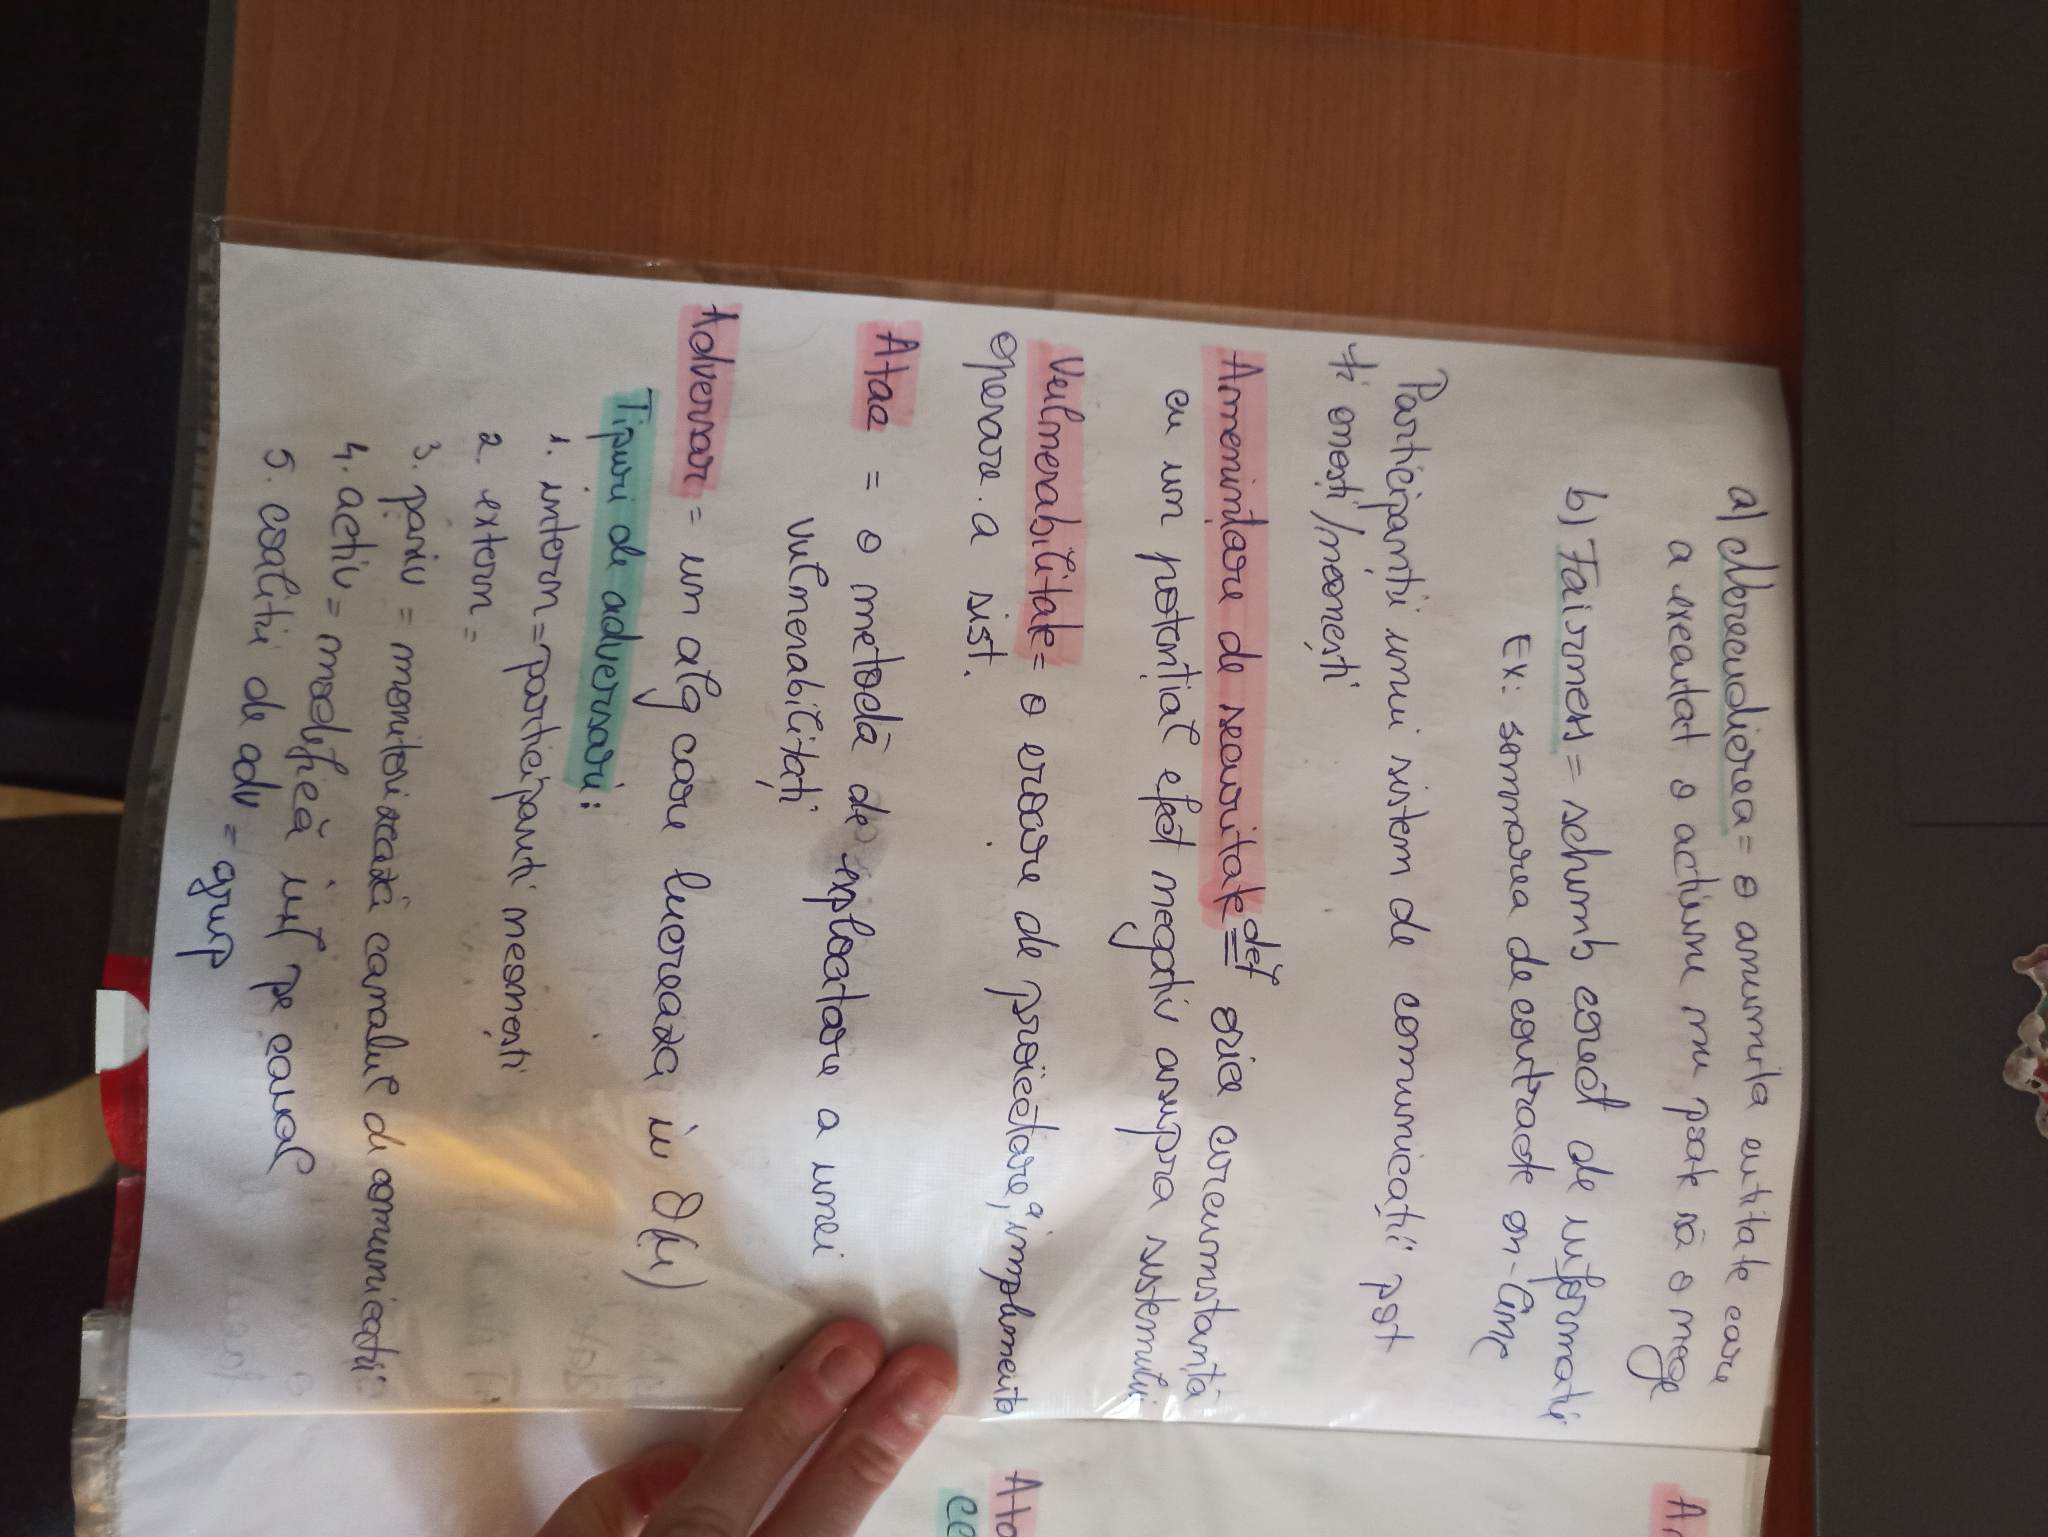 a) Nerecudierea = o anumita entitate care
a executat o actiune nu poate să o nege
b) Fairness = schimb corect de informatii
Ex: semnarea de contracte on-line
Participantii unui sistem de comunicații pot
fi onești/neonești
Amenințare de securitate def= orice circumstanță
cu un potențial efect negativ asupra sistemului
Vulnerabilitate = o eroare de proiectare, implementa
operare a sist.
Atac = o metodă de exploatare a unei
vulnerabilitați
Adversar = un alg care lucreaza in
Tipuri de adversari:
1. intern = participanti neonești
2. extern =
3. pasiv = monitorizează canalul de comunicatii
4. activ = modifică inf pe canal
5. coalitii de adv = grup
Ata